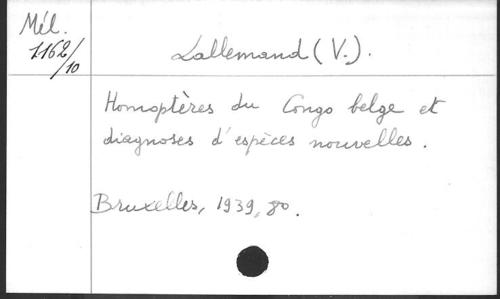 Mél.
1162/10
Lallemand (V.).
Homoptères du Congo belge et
diagnoses d'espèces nouvelles.
Bruxelles, 1939, 8o.